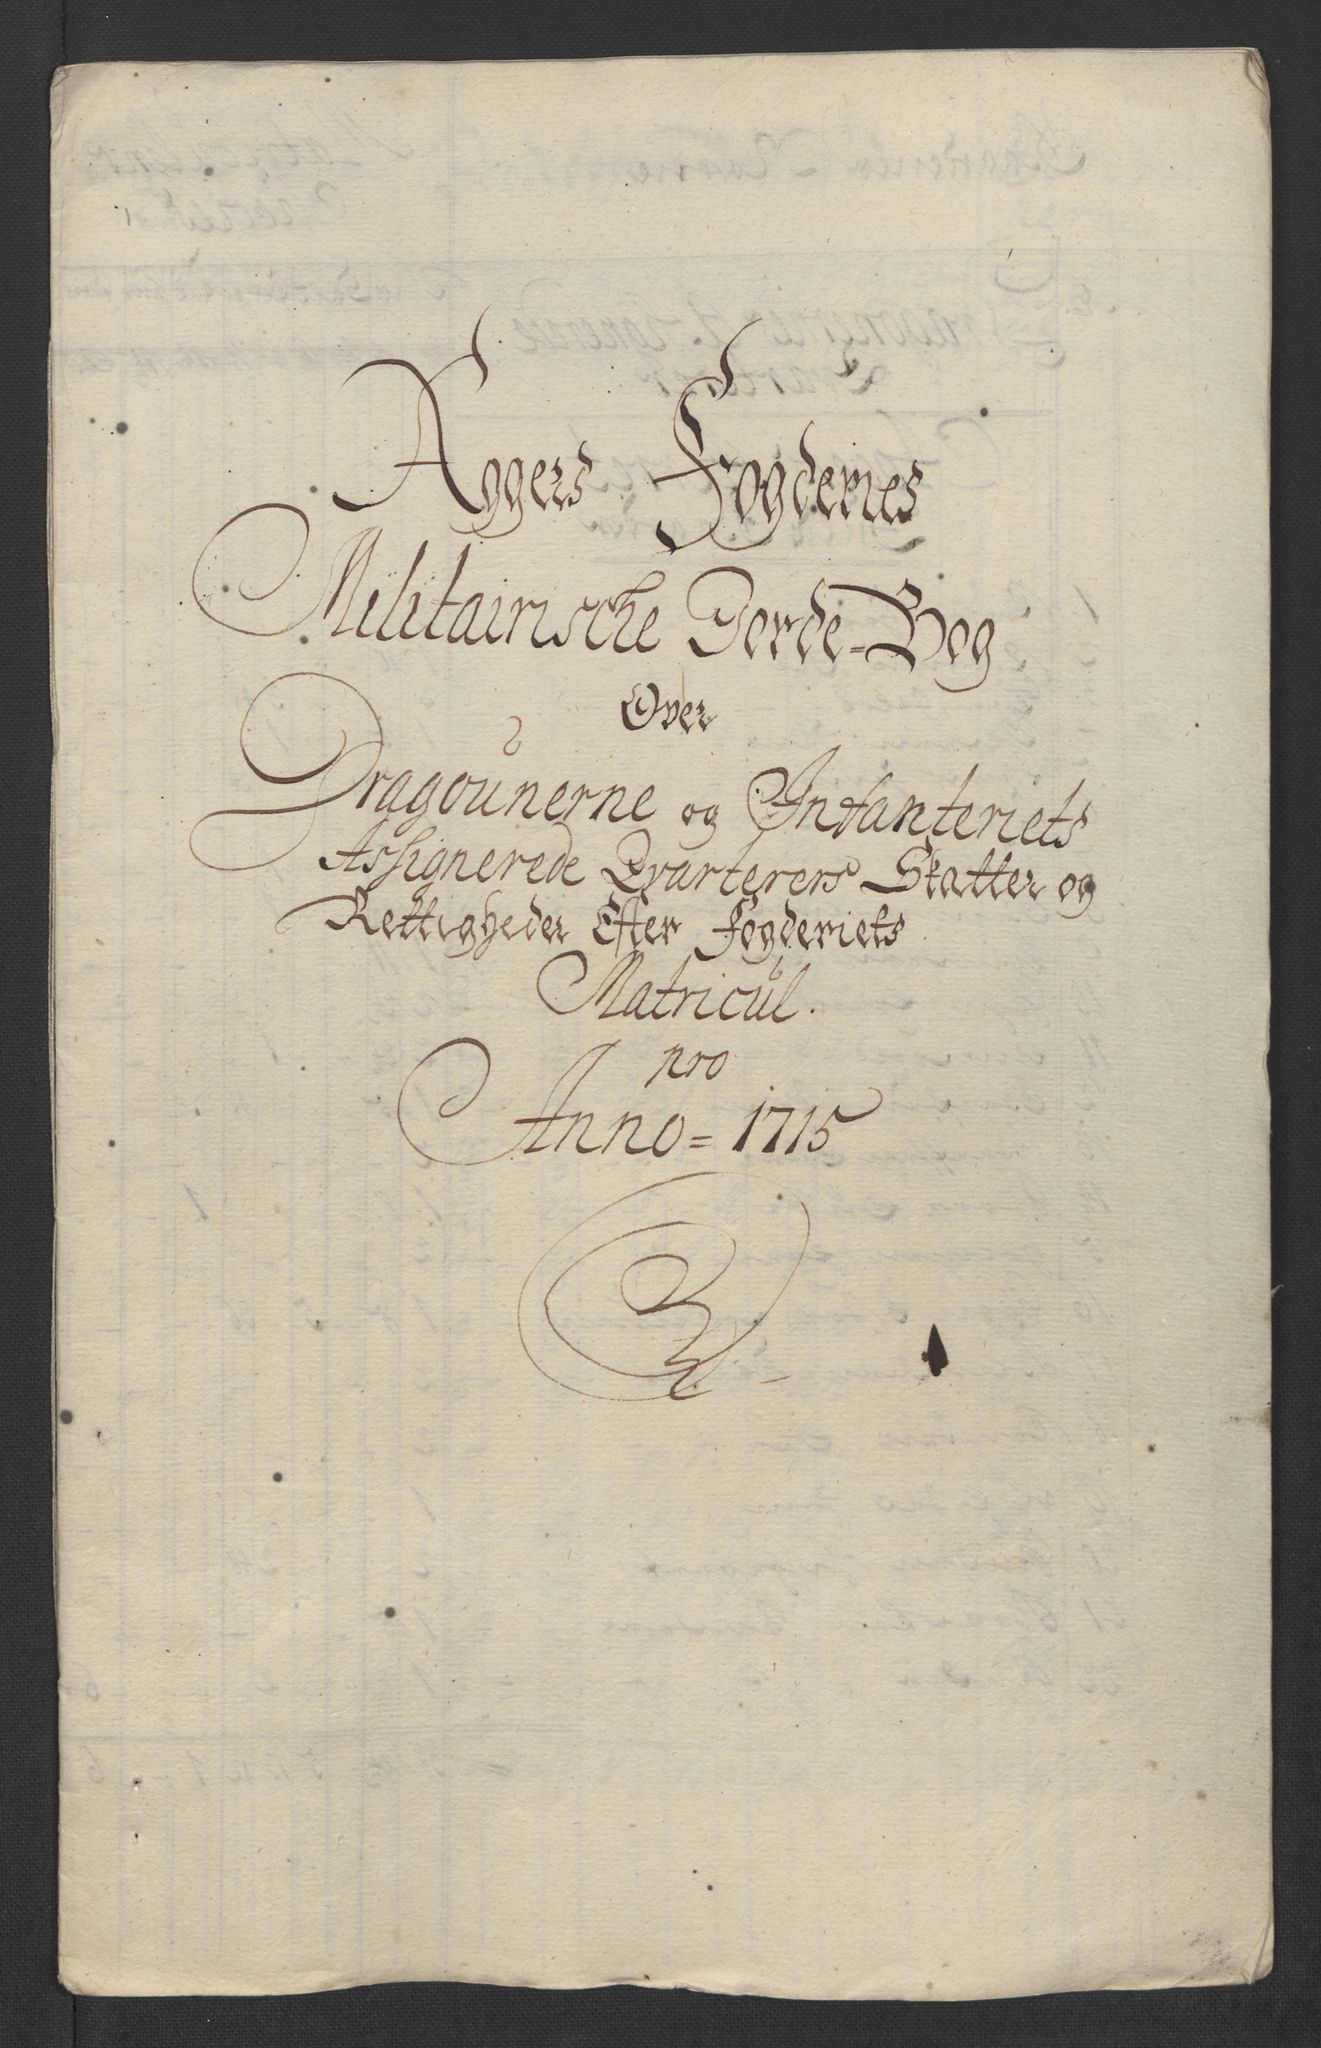 Aggers Fogderies
Militairische Jorde=Bog
Over
Dragounerne og Infanteriets
Assignerede Qvarterers Skatter og
Rettigheder Efter Fogderiets
Matricul.
pro
Anno= 1715